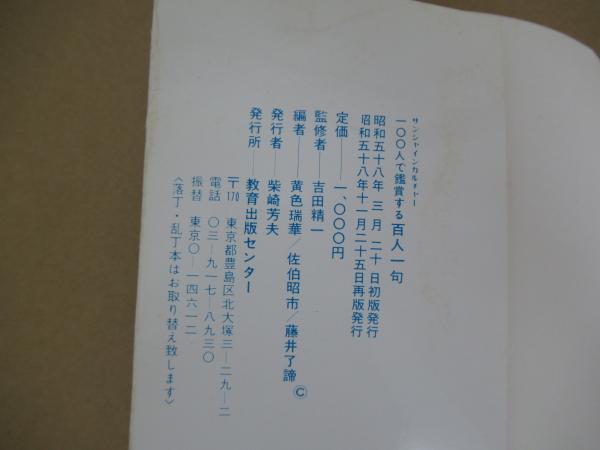 サンシャインカルチャー
一〇〇人で鑑賞する百人一句
昭和五十八年 三 月 二十 日初版発行
昭和五十八年十一月二十五日再版発行
定価――一、〇〇〇円
監修者――吉田精一
編者――黄色瑞華/佐伯昭市/藤井了諦 ©
発行者――柴崎芳夫
発行所――教育出版センター
〒170 東京都豊島区北大塚三―二九―二
電話 〇三―九一七―八九三〇
振替 東京〇―一四六一二
〈落丁・乱丁本はお取り替え致します〉